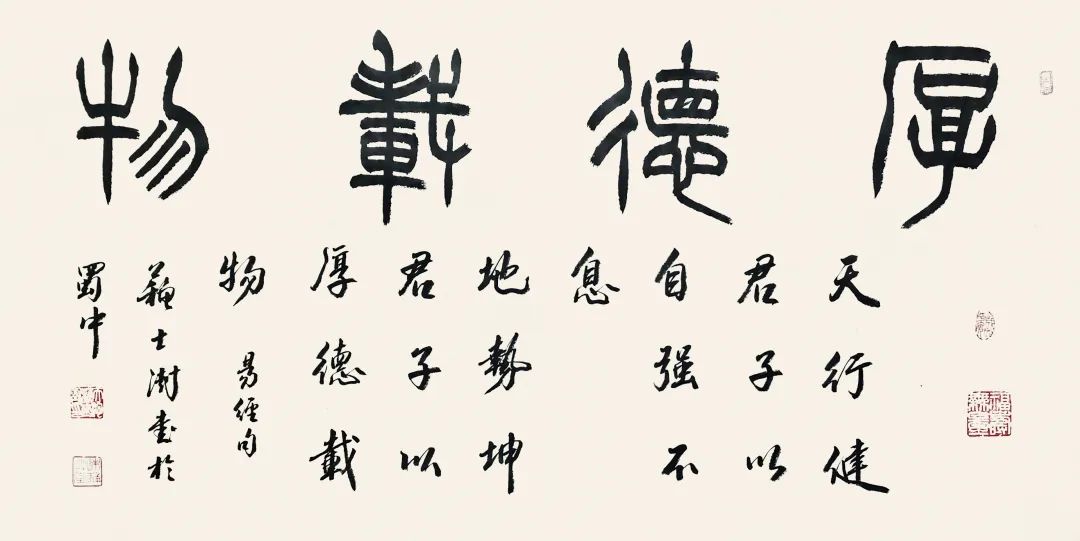 厚德載物
天行健
君子以
自强不
息
地勢坤
君子以
厚德載
物
易經句
蘇士澍書於
蜀中